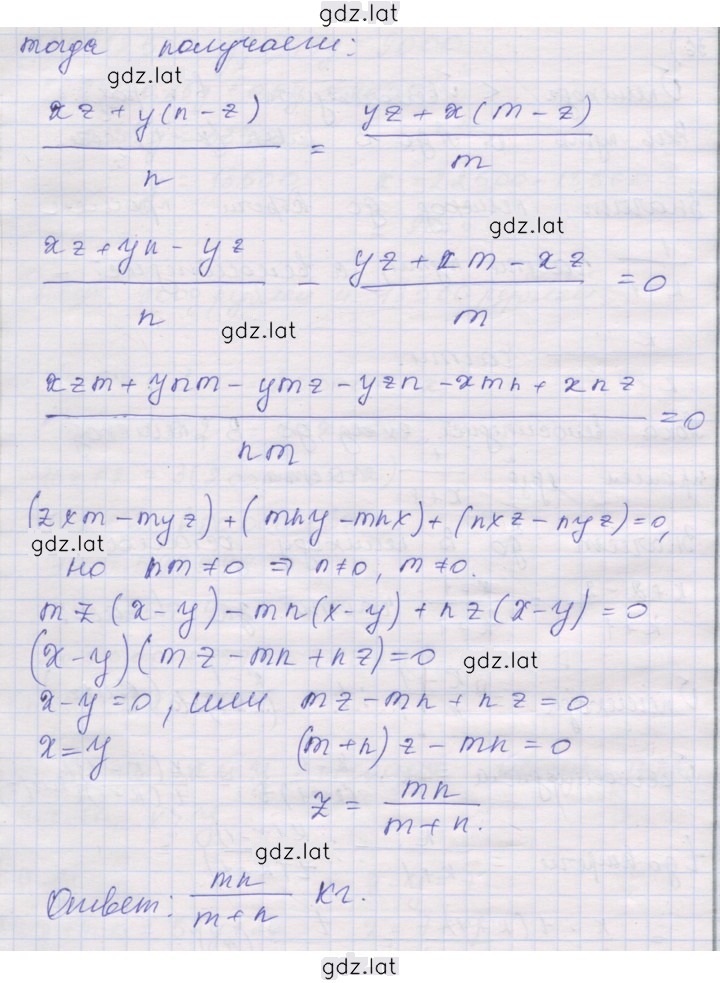 gdz.lat
тогда получаем:
gdz.lat
(xz + y(n - z))/n = (yz + x(m - z))/m
gdz.lat
(xz + yn - yz)/n - (yz + xm - xz)/m = 0
gdz.lat
(xzm + ynm - ymz - yzn - xmn + xnz)/nm = 0
(zxm - myz) + (mny - mnx) + (nxz - nyz) = 0,
gdz.lat
но nm ≠ 0 ⇒ n ≠ 0, m ≠ 0.
mz(x - y) - mn(x - y) + nz(x - y) = 0
(x - y)(mz - mn + nz) = 0
gdz.lat
x - y = 0, или mz - mn + nz = 0
x = y (m + n)z - mn = 0
z = mn/(m + n).
gdz.lat
Ответ: mn/(m + n) кг.
gdz.lat